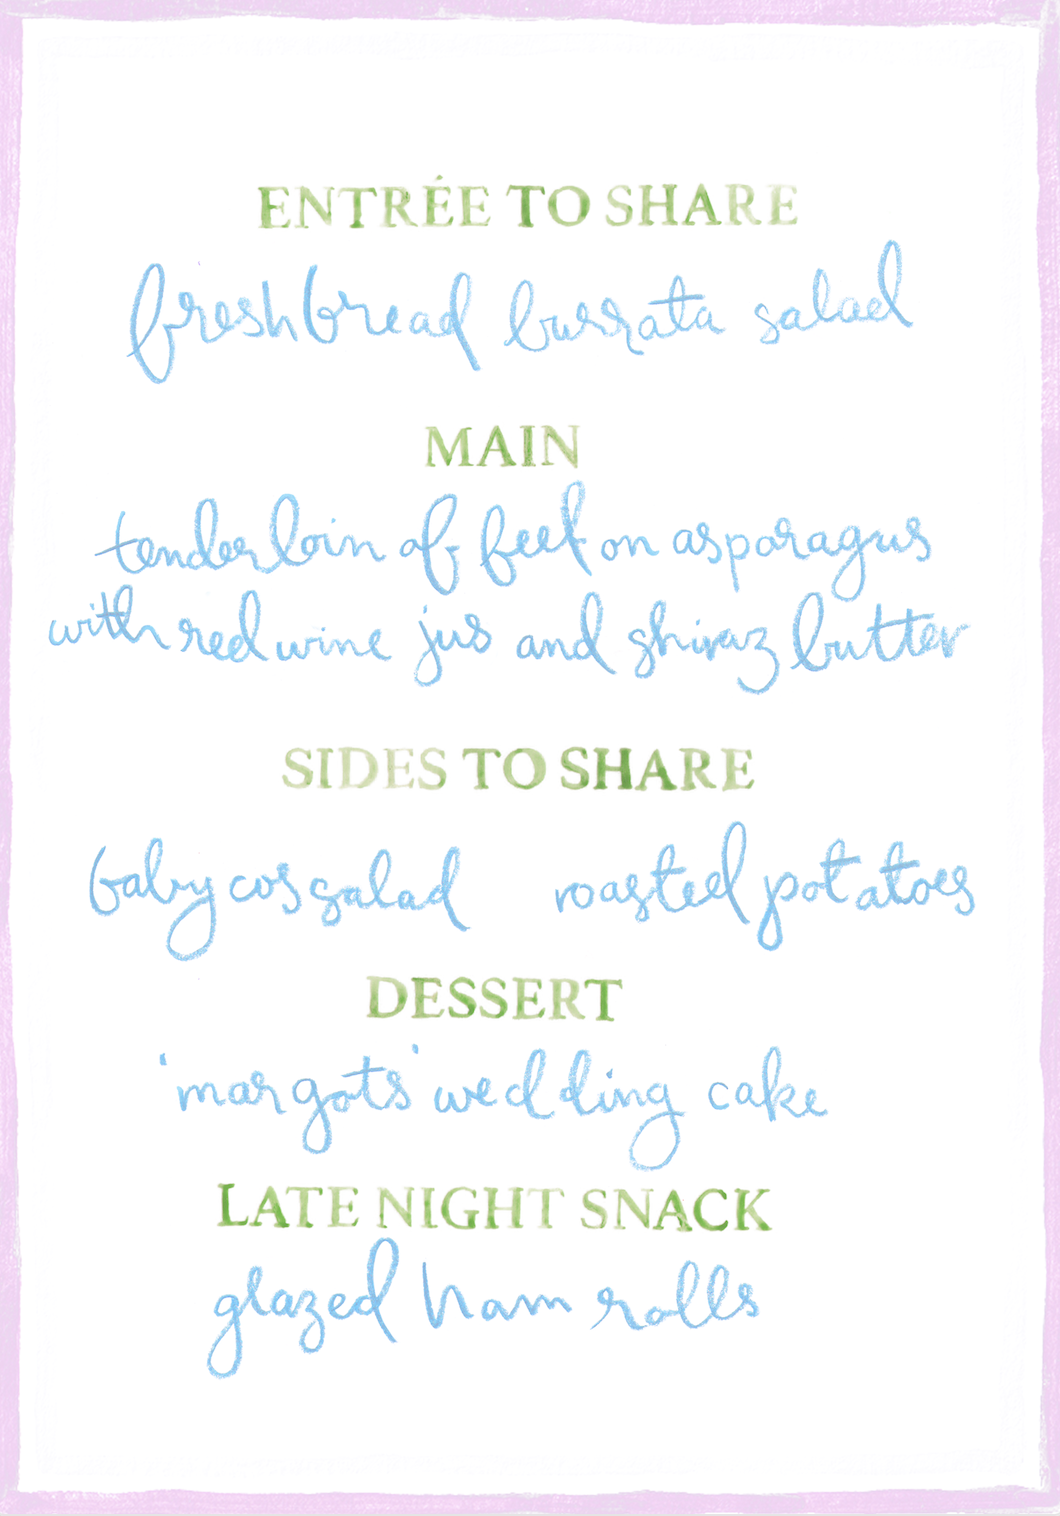 ENTRÉE TO SHARE
fresh bread burrata salad
MAIN
tenderloin of beef on asparagus
with red wine jus and shiraz butter
SIDES TO SHARE
baby cos salad roasted potatoes
DESSERT
'margots' wedding cake
LATE NIGHT SNACK
glazed ham rolls